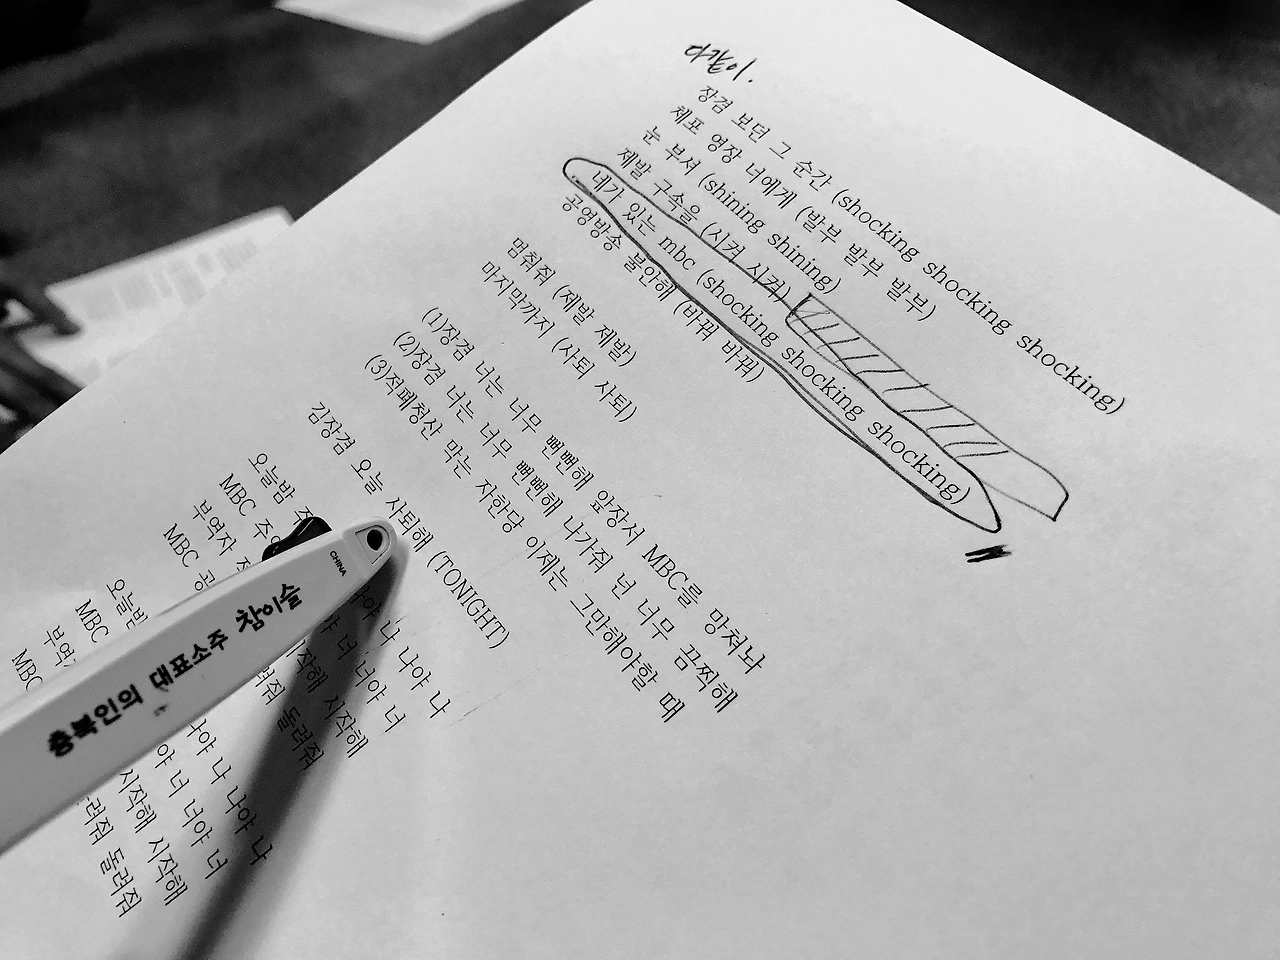 다같이.
장겸 보던 그 순간 (shocking shocking shocking)
체포 영장 너에게 (발부 발부 발부)
눈 부셔 (shining shining)
제발 구속을 (시켜 시켜)
네가 있는 mbc (shocking shocking shocking)
공영방송 불안해 (바꿔 바꿔)
멈춰줘 (제발 제발)
마지막까지 (사퇴 사퇴)
(1)장겸 너는 너무 뻔뻔해 앞장서 MBC를 망쳐놔
(2)장겸 너는 너무 뻔뻔해 나가줘 넌 너무 끔찍해
(3)적폐청산 막는 자한당 이제는 그만해야할 때
김장겸 오늘 사퇴해 (TONIGHT)
오늘밤 주 나야 나
MBC 주 너 너야 너
부역자 시작해
MBC 공 돌려줘
오늘밤 나야 나 나야 나
MBC 너 너야 너
부역 시작해 시작해
MBC 돌려줘
충북인의 대표소주 참이슬
CHINA